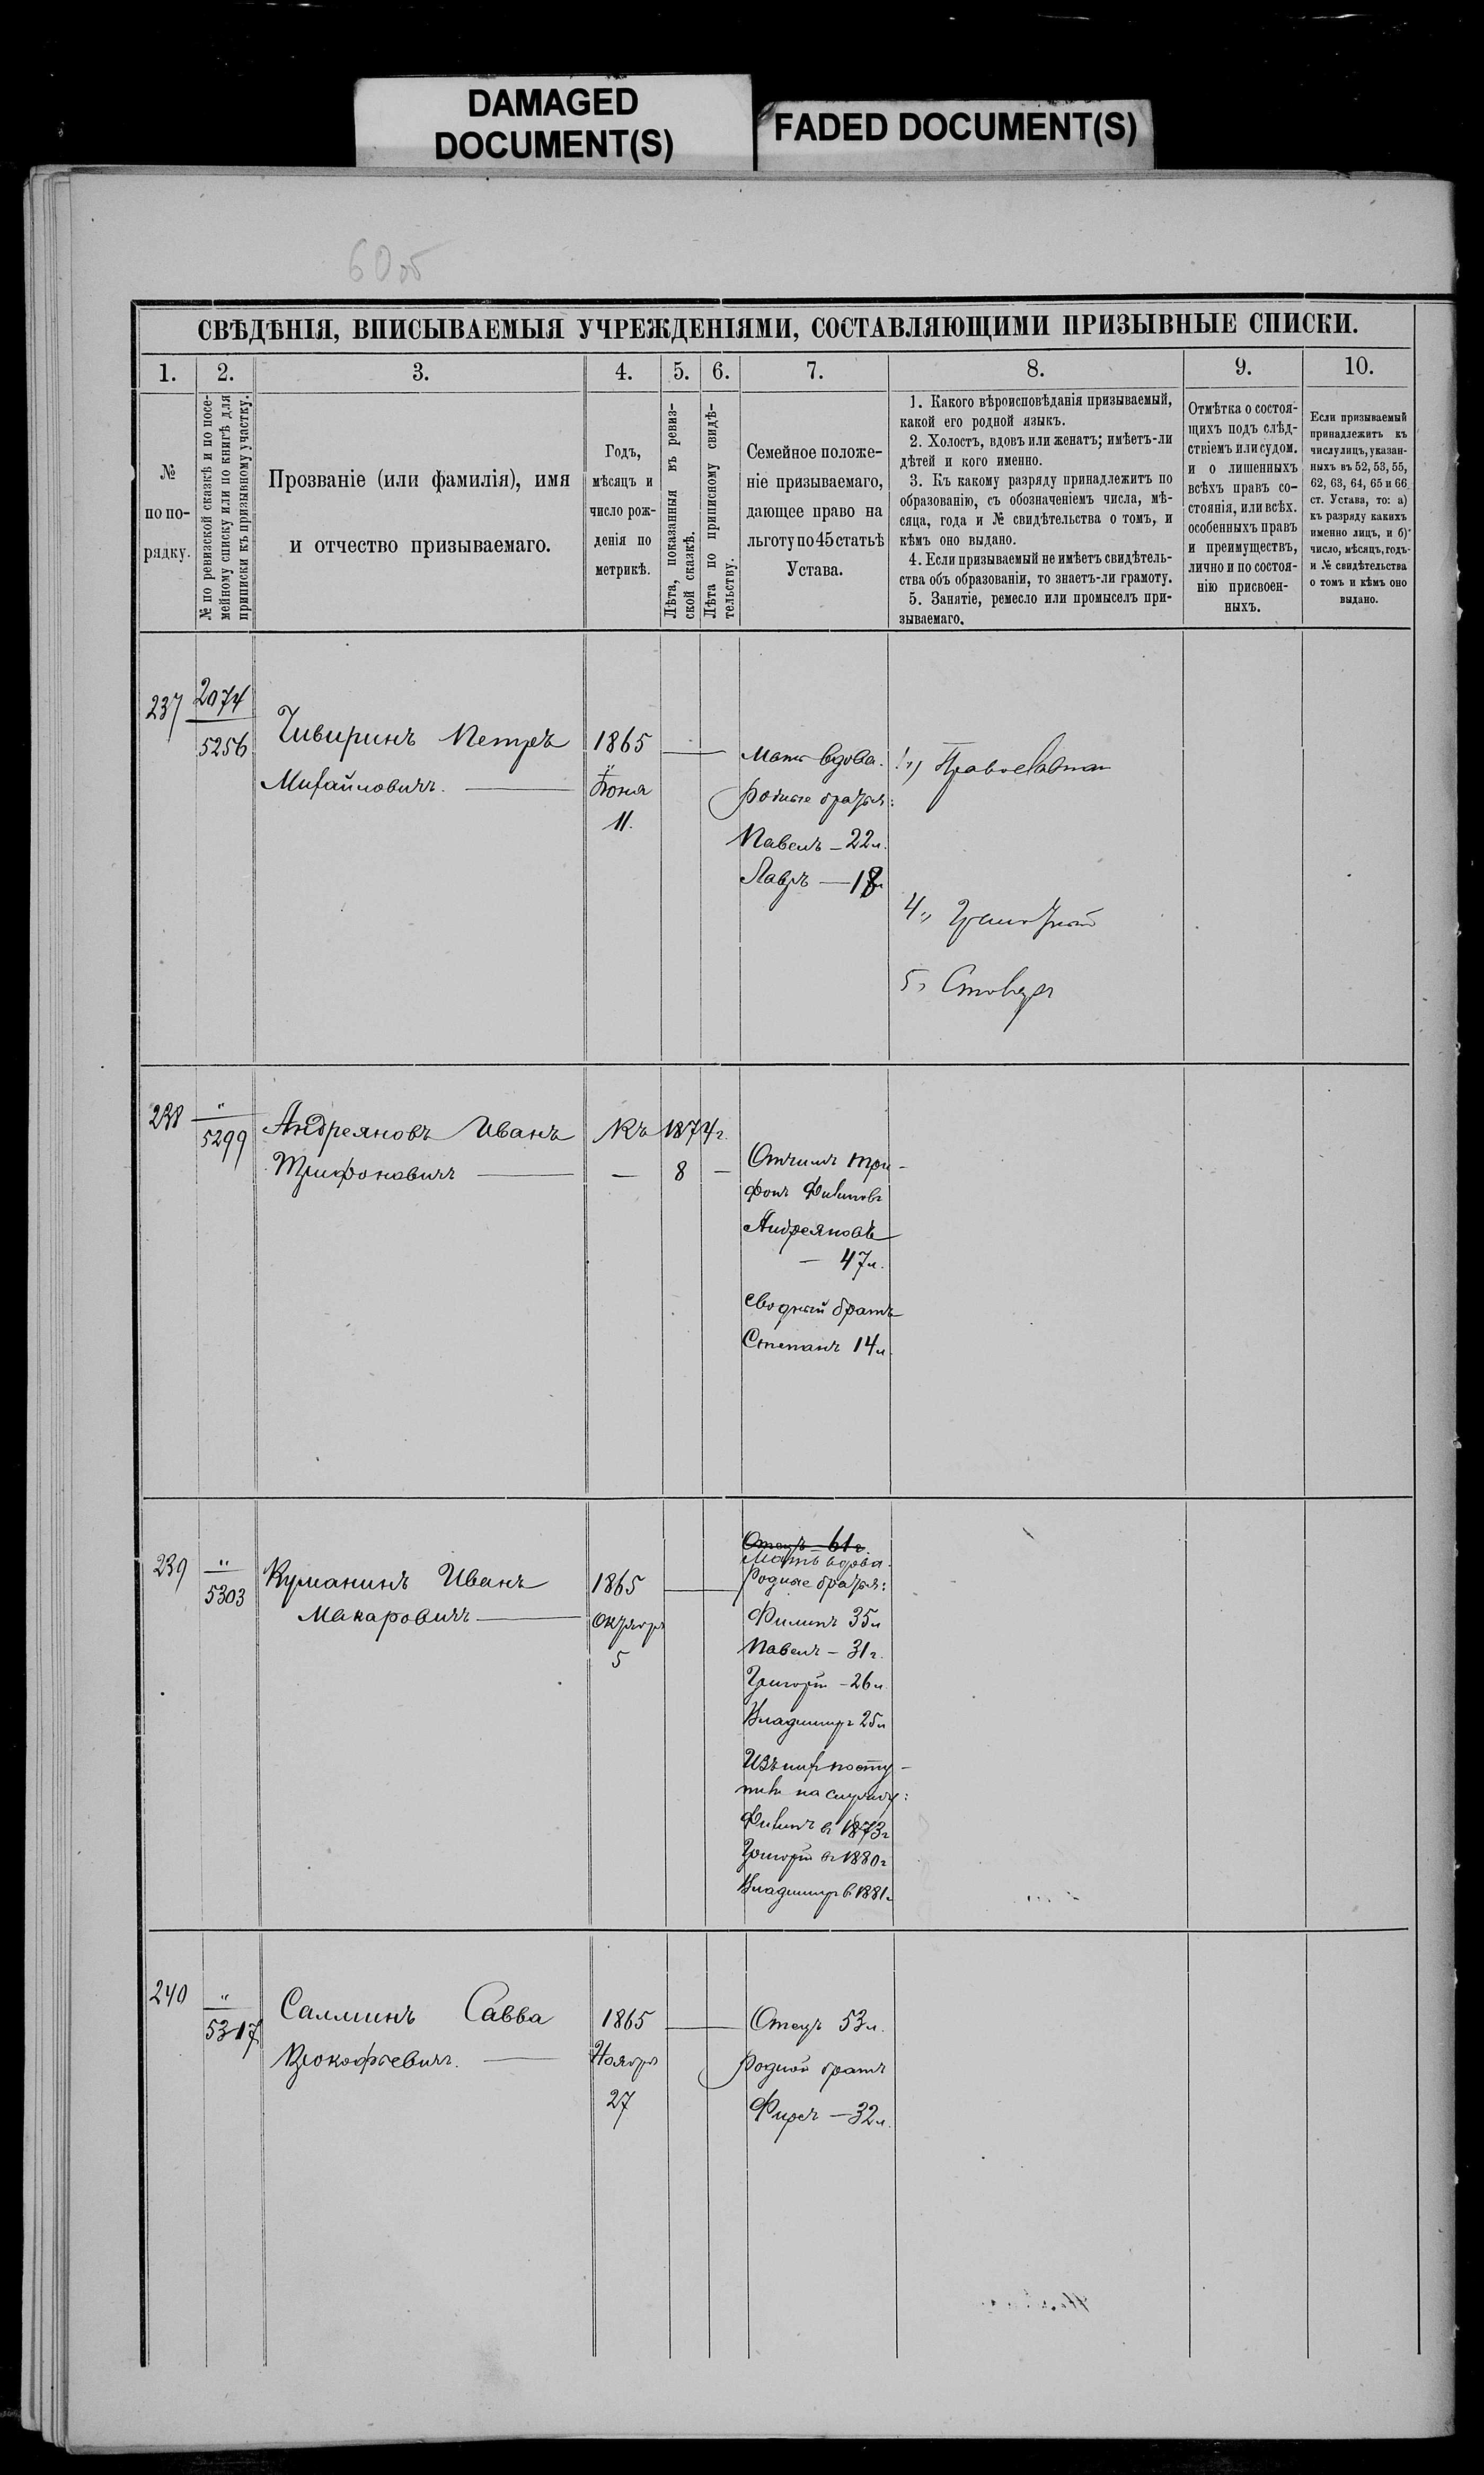 DAMAGED
DOCUMENT(S)
FADED DOCUMENT(S)
60об
СВѢДѢНІЯ, ВПИСЫВАЕМЫЯ УЧРЕЖДЕНІЯМИ, СОСТАВЛЯЮЩИМИ ПРИЗЫВНЫЕ СПИСКИ.
1. 2. 3. 4. 5. 6. 7. 8. 9. 10.
№
по по-
рядку.
№ по ревизской сказкѣ и по посе-
мейному списку или по книгѣ для
приписки къ призывному участку.
Прозваніе (или фамилія), имя
и отчество призываемаго.
Годъ,
мѣсяцъ и
число рож-
денія по
метрикѣ.
Лѣта, показанныя въ ревиз-
ской сказкѣ.
Лѣта по приписному свидѣ-
тельству.
Семейное положе-
ніе призываемаго,
дающее право на
льготу по 45 статьѣ
Устава.
1. Какого вѣроисповѣданія призываемый,
какой его родной языкъ.
2. Холостъ, вдовъ или женатъ; имѣетъ-ли
дѣтей и кого именно.
3. Къ какому разряду принадлежитъ по
образованію, съ обозначеніемъ числа, мѣ-
сяца, года и № свидѣтельства о томъ, и
кѣмъ оно выдано.
4. Если призываемый не имѣетъ свидѣтель-
ства объ образованіи, то знаетъ-ли грамоту.
5. Занятіе, ремесло или промыселъ при-
зываемаго.
Отмѣтка о состоя-
щихъ подъ слѣд-
ствіемъ или судом.
и о лишенныхъ
всѣхъ правъ со-
стоянія, или всѣх.
особенныхъ правъ
и преимуществъ,
лично и по состоя-
нію присвоен-
ныхъ.
Если призываемый
принадлежитъ къ
числу лицъ, указан-
ныхъ въ 52, 53, 55,
62, 63, 64, 65 и 66
ст. Устава, то: а)
къ разряду какихъ
именно лицъ, и б)
число, мѣсяцъ, годъ
и № свидѣтельства
о томъ и кѣмъ оно
выдано.
237
2074
5256
Чивиринъ Петръ
Михайловичъ. —
1865
Іюня
11.
Мать вдова.
родные братья:
Павелъ — 22 л.
Лавръ — 18 л
1) Православный
4) Грамотный
5) Столяръ
238
"
5299
Андреяновъ Иванъ
Трифоновичъ —
Къ 1874 г.
— 8 —
Отчимъ Три-
фонъ Филиповъ
Андреяновъ
— 47 л.
сводный братъ
Степанъ 14 л.
239
"
5303
Куманинъ Иванъ
Макаровичъ —
1865
Октября
5
Отецъ — 61 г.
Мать вдова.
Родные братья:
Филипъ 35 л
Павелъ — 31 г.
Григорій — 26 л
Владимиръ 25 л
Изъ нихъ посту-
пили на службу:
Филипъ въ 1873 г
Григорій въ 1880 г
Владимиръ в 1881 г
240
"
5317
Салминъ Савва
Прокофьевичъ. —
1865
Ноября
27
Отецъ 53 л.
Родной братъ
Фирсъ — 32 л.